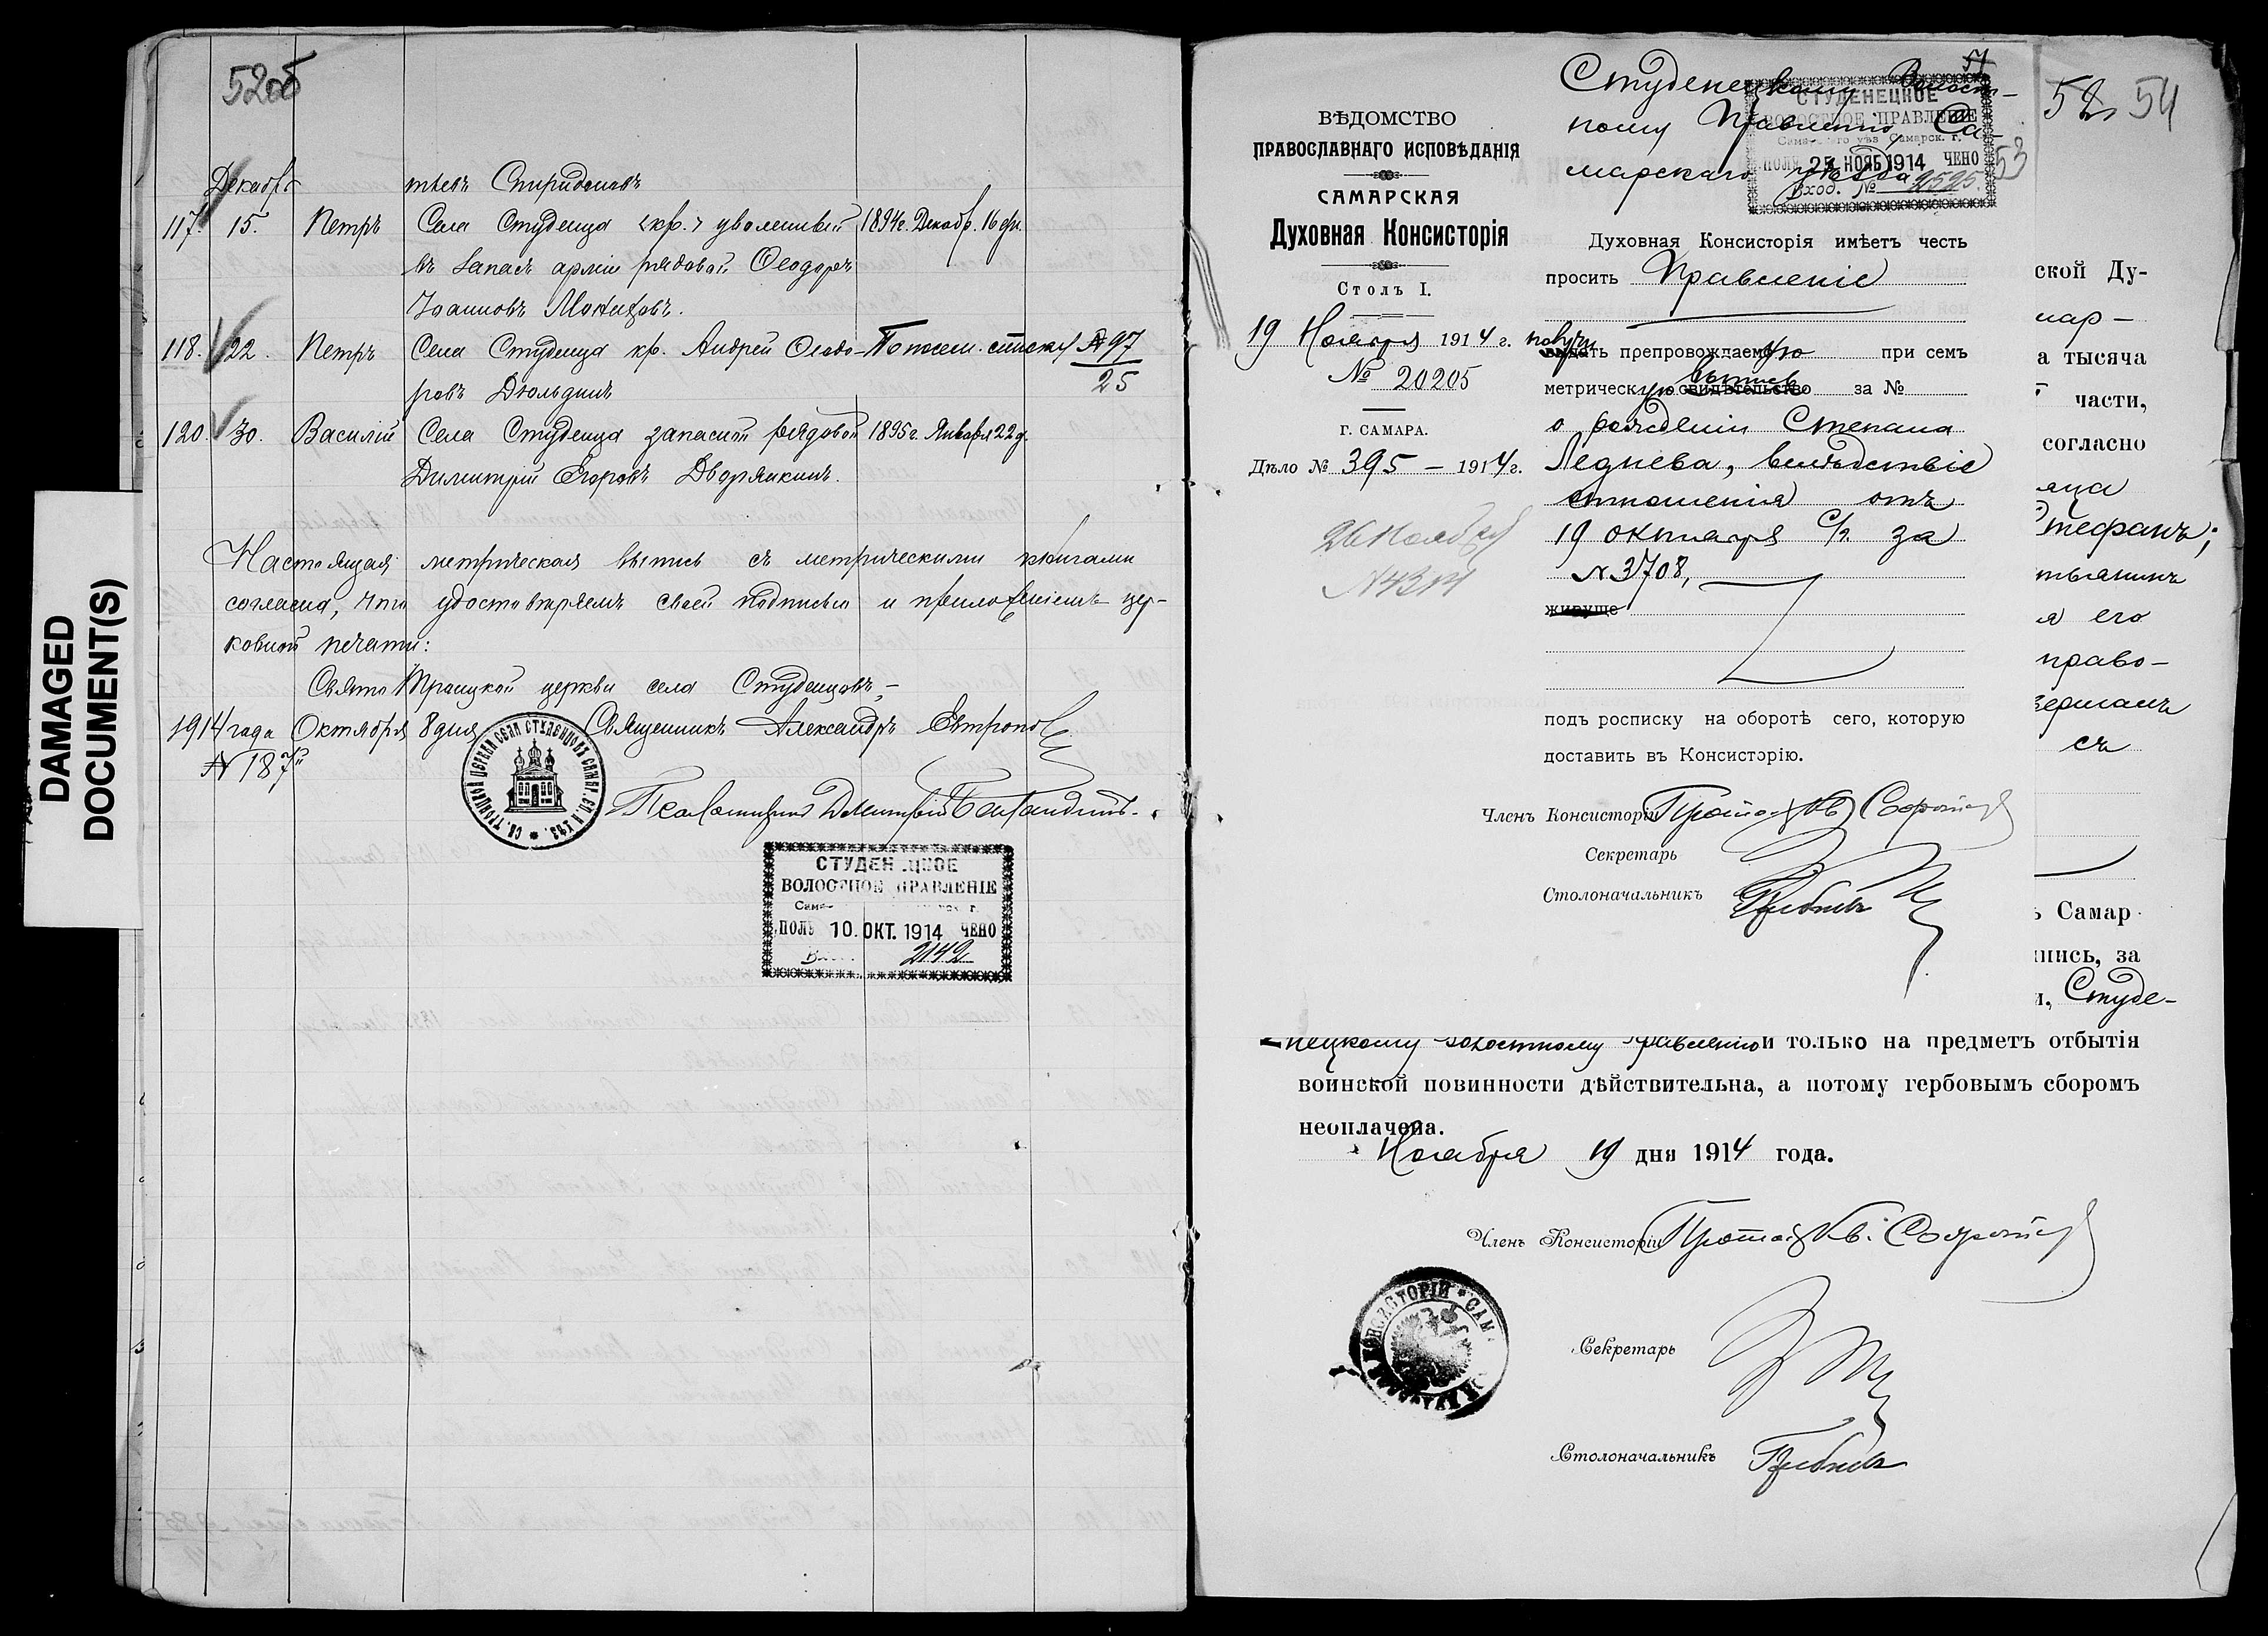 DAMAGED
DOCUMENT(S)
52об
Декабрь
тьевъ Спиридоновъ
117. 15. Петръ Села Студенца кр. уволенный 1894г. Декабр. 16 дн.
въ запасъ арміи рядовой Ѳеодоръ
Іоанновъ
118. 22. Петръ Села Студенца кр. Андрей Ѳеодо- По посем. списку № 97
25
ровъ Дюльдинъ
120. 30. Василій Села Студенца запасной рядовой 1895г. Января 22 д.
Димитрій Егоровъ Дворянкинъ.
Настоящая метрическая выпись съ метрическими книгами
согласна, что удостовѣряемъ своей подписью и приложеніемъ цер-
ковной печати:
Свято Троицкой церкви села Студенцовъ,-
1914 года Октября 8 дня Священникъ Александръ Евтропов
№ 187
СВ. ТРОИЦКОЙ ЦЕРКВИ СЕЛА СТУДЕНЦОВЪ
Псаломщикъ Димитрій
СТУДЕН ЦКОЕ
ВОЛОСТНОЕ ПРАВЛЕНІЕ
ПОЛУ 10. ОКТ. 1914 ЧЕНО
2142
ВѢДОМСТВО
ПРАВОСЛАВНАГО ИСПОВѢДАНІЯ
САМАРСКАЯ
Духовная Консисторія
Столъ I.
19 Ноября 1914 г.
№ 20205
Г. САМАРА.
Дѣло № 395 – 1914 г.
26 Ноября
Студенецкому Волост-
ному Правленію Са-
марскаго уѣзда
СТУДЕНЕЦКОЕ
ВОЛОСТНОЕ ПРАВЛЕНІЕ
Самарскаго уѣз. Самарск. г.
ПОЛУ 25 НОЯБ 1914 ЧЕНО
Вход. № 2525.
51
52 54
53
Духовная Консисторія имѣетъ честь
просить Правленіе
выдать препровождаемую при семъ
метрическую свидѣтельство выпись за №
о рожденіи Степана
Леднева, вслѣдствіе
отношенія отъ
19 октября с/г. за
№ 3708,
живуще
подъ росписку на оборотѣ сего, которую
доставить въ Консисторію.
Членъ Консисторіи
Секретарь
Столоначальникъ
ской Ду-
мар-
а тысяча
части,
согласно
яца
Стефанъ;
тьянинъ
я его
право-
вершалъ
съ
ъ Самар
пись, за
и, Студе-
нецкому волостному Правленію и только на предметъ отбытія
воинской повинности дѣйствительна, а потому гербовымъ сборомъ
неоплачена.
Ноября 19 дня 1914 года.
Членъ Консисторіи
КОНСИСТОРІИ * САМ
Секретарь
Столоначальникъ